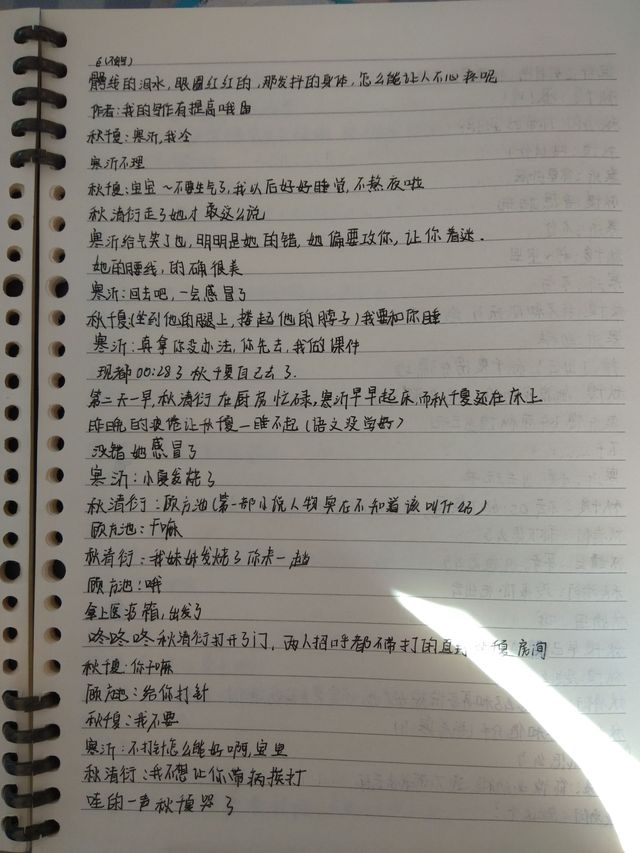 6(不鸽)
髒线的泪水，眼圈红红的，那发抖的身体，怎么能让人不心疼呢
作者：我的写作有提高哦
秋傻：寒沂，我冷
寒沂不理
秋傻：宝宝～不要生气了，我以后好好睡觉，不熬夜啦
秋清衍走了她才敢这么说
寒沂给气笑了也，明明是她的错，她偏要攻你，让你着迷.
她的腰线，的确很美
寒沂：回去吧，一会感冒了
秋傻(坐到他的腿上，搂起他的脖子)我要和你睡
寒沂：真拿你没办法，你先去，我的课件
现都00:28了秋傻自己去了.
第二天一早，秋清衍在厨房忙碌，寒沂早早起床，而秋傻还在床上
昨晚的疲倦让秋傻一睡不起(语文没学好)
没错她感冒了
寒沂：小傻发烧了
秋清衍：顾方池(第一部小说人物实在不知道该叫什么)
顾方池：干嘛
秋清衍：我妹妹发烧了你来一趟
顾方池：哦
拿上医药箱，出发了
咚咚咚秋清衍打开了门，两人招呼都不带打的直 傻房间
秋傻：你干嘛
顾方池：给你打针
秋傻：我不要
寒沂：不打针怎么能好啊，宝里
秋清衍：我不想让你带病挨打
哇的一声秋傻哭了